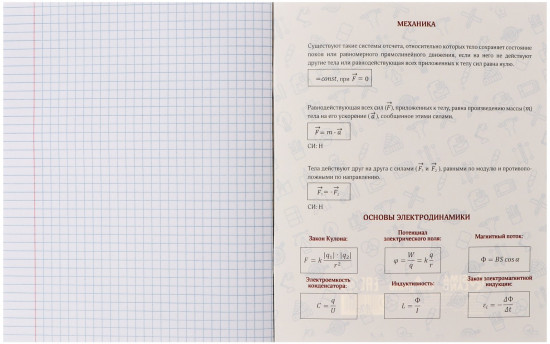 МЕХАНИКА
Существуют такие системы отсчета, относительно которых тело сохраняет состояние
покоя или равномерного прямолинейного движения, если на него не действуют
другие тела или равнодействующая всех приложенных к телу сил равна нулю.
=const, при F⃗ = 0
Равнодействующая всех сил (F⃗), приложенных к телу, равна произведению массы (m)
тела на его ускорение (a⃗), сообщенное этими силами.
F⃗ = m · a⃗
СИ: Н
Тела действуют друг на друга с силами (F⃗₁ и F⃗₂), равными по модулю и противопо-
ложными по направлению.
F⃗₁ = -F⃗₂
СИ: Н
ОСНОВЫ ЭЛЕКТРОДИНАМИКИ
Закон Кулона:
F = k |q₁| · |q₂| / r²
Потенциал
электрического поля:
φ = W/q = k q/r
Магнитный поток:
Φ = BS cos α
Электроемкость
конденсатора:
C = q/U
Индуктивность:
L = Φ/I
Закон электромагнитной
индукции:
εᵢ = - ΔΦ/Δt